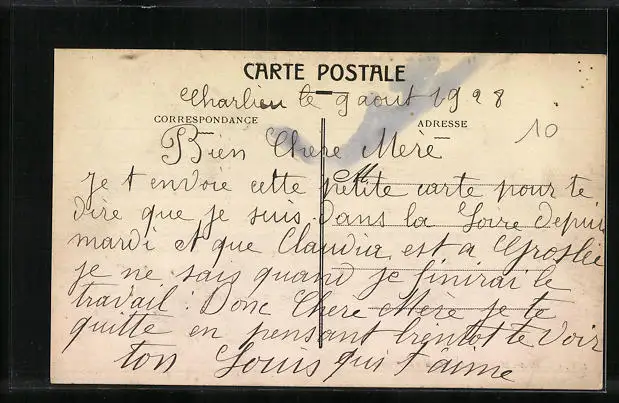 CARTE POSTALE
Charlieu le 9 aout 1928
CORRESPONDANCE
ADRESSE
10
Bien Chere Mère
M
Je t envoie cette petite carte pour te
dire que je suis dans la Loire depui
mardi et que Claudia est a Groslée
je ne sais quand je finirai le
travail. Donc Chere Mère je te
quitte en pensant bientot te voir
ton Louis qui t'aime